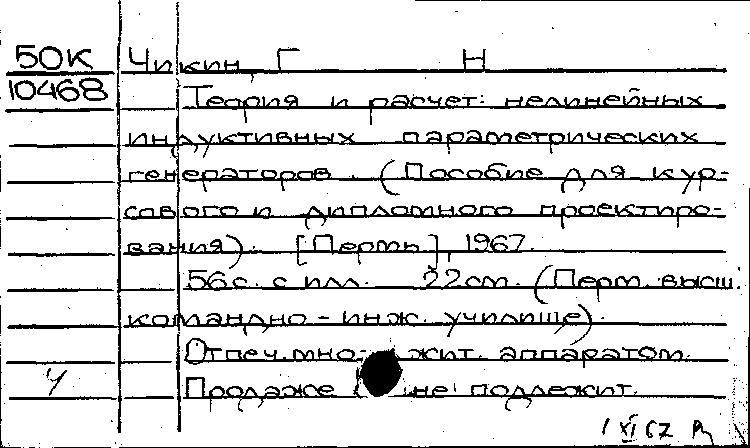 50К Чикин, Г Н
10468 Теория и расчет нелинейных
индуктивных параметрических
генераторов. (Пособие для кур-
сового и дипломного проектиро-
вания). [Пермь], 1967.
56с. с илл. 22см. (Перм. высш.
командно-инж. училище).
Отпеч. множит. аппаратом.
Ч Продаже не подлежит.
1 XI 67